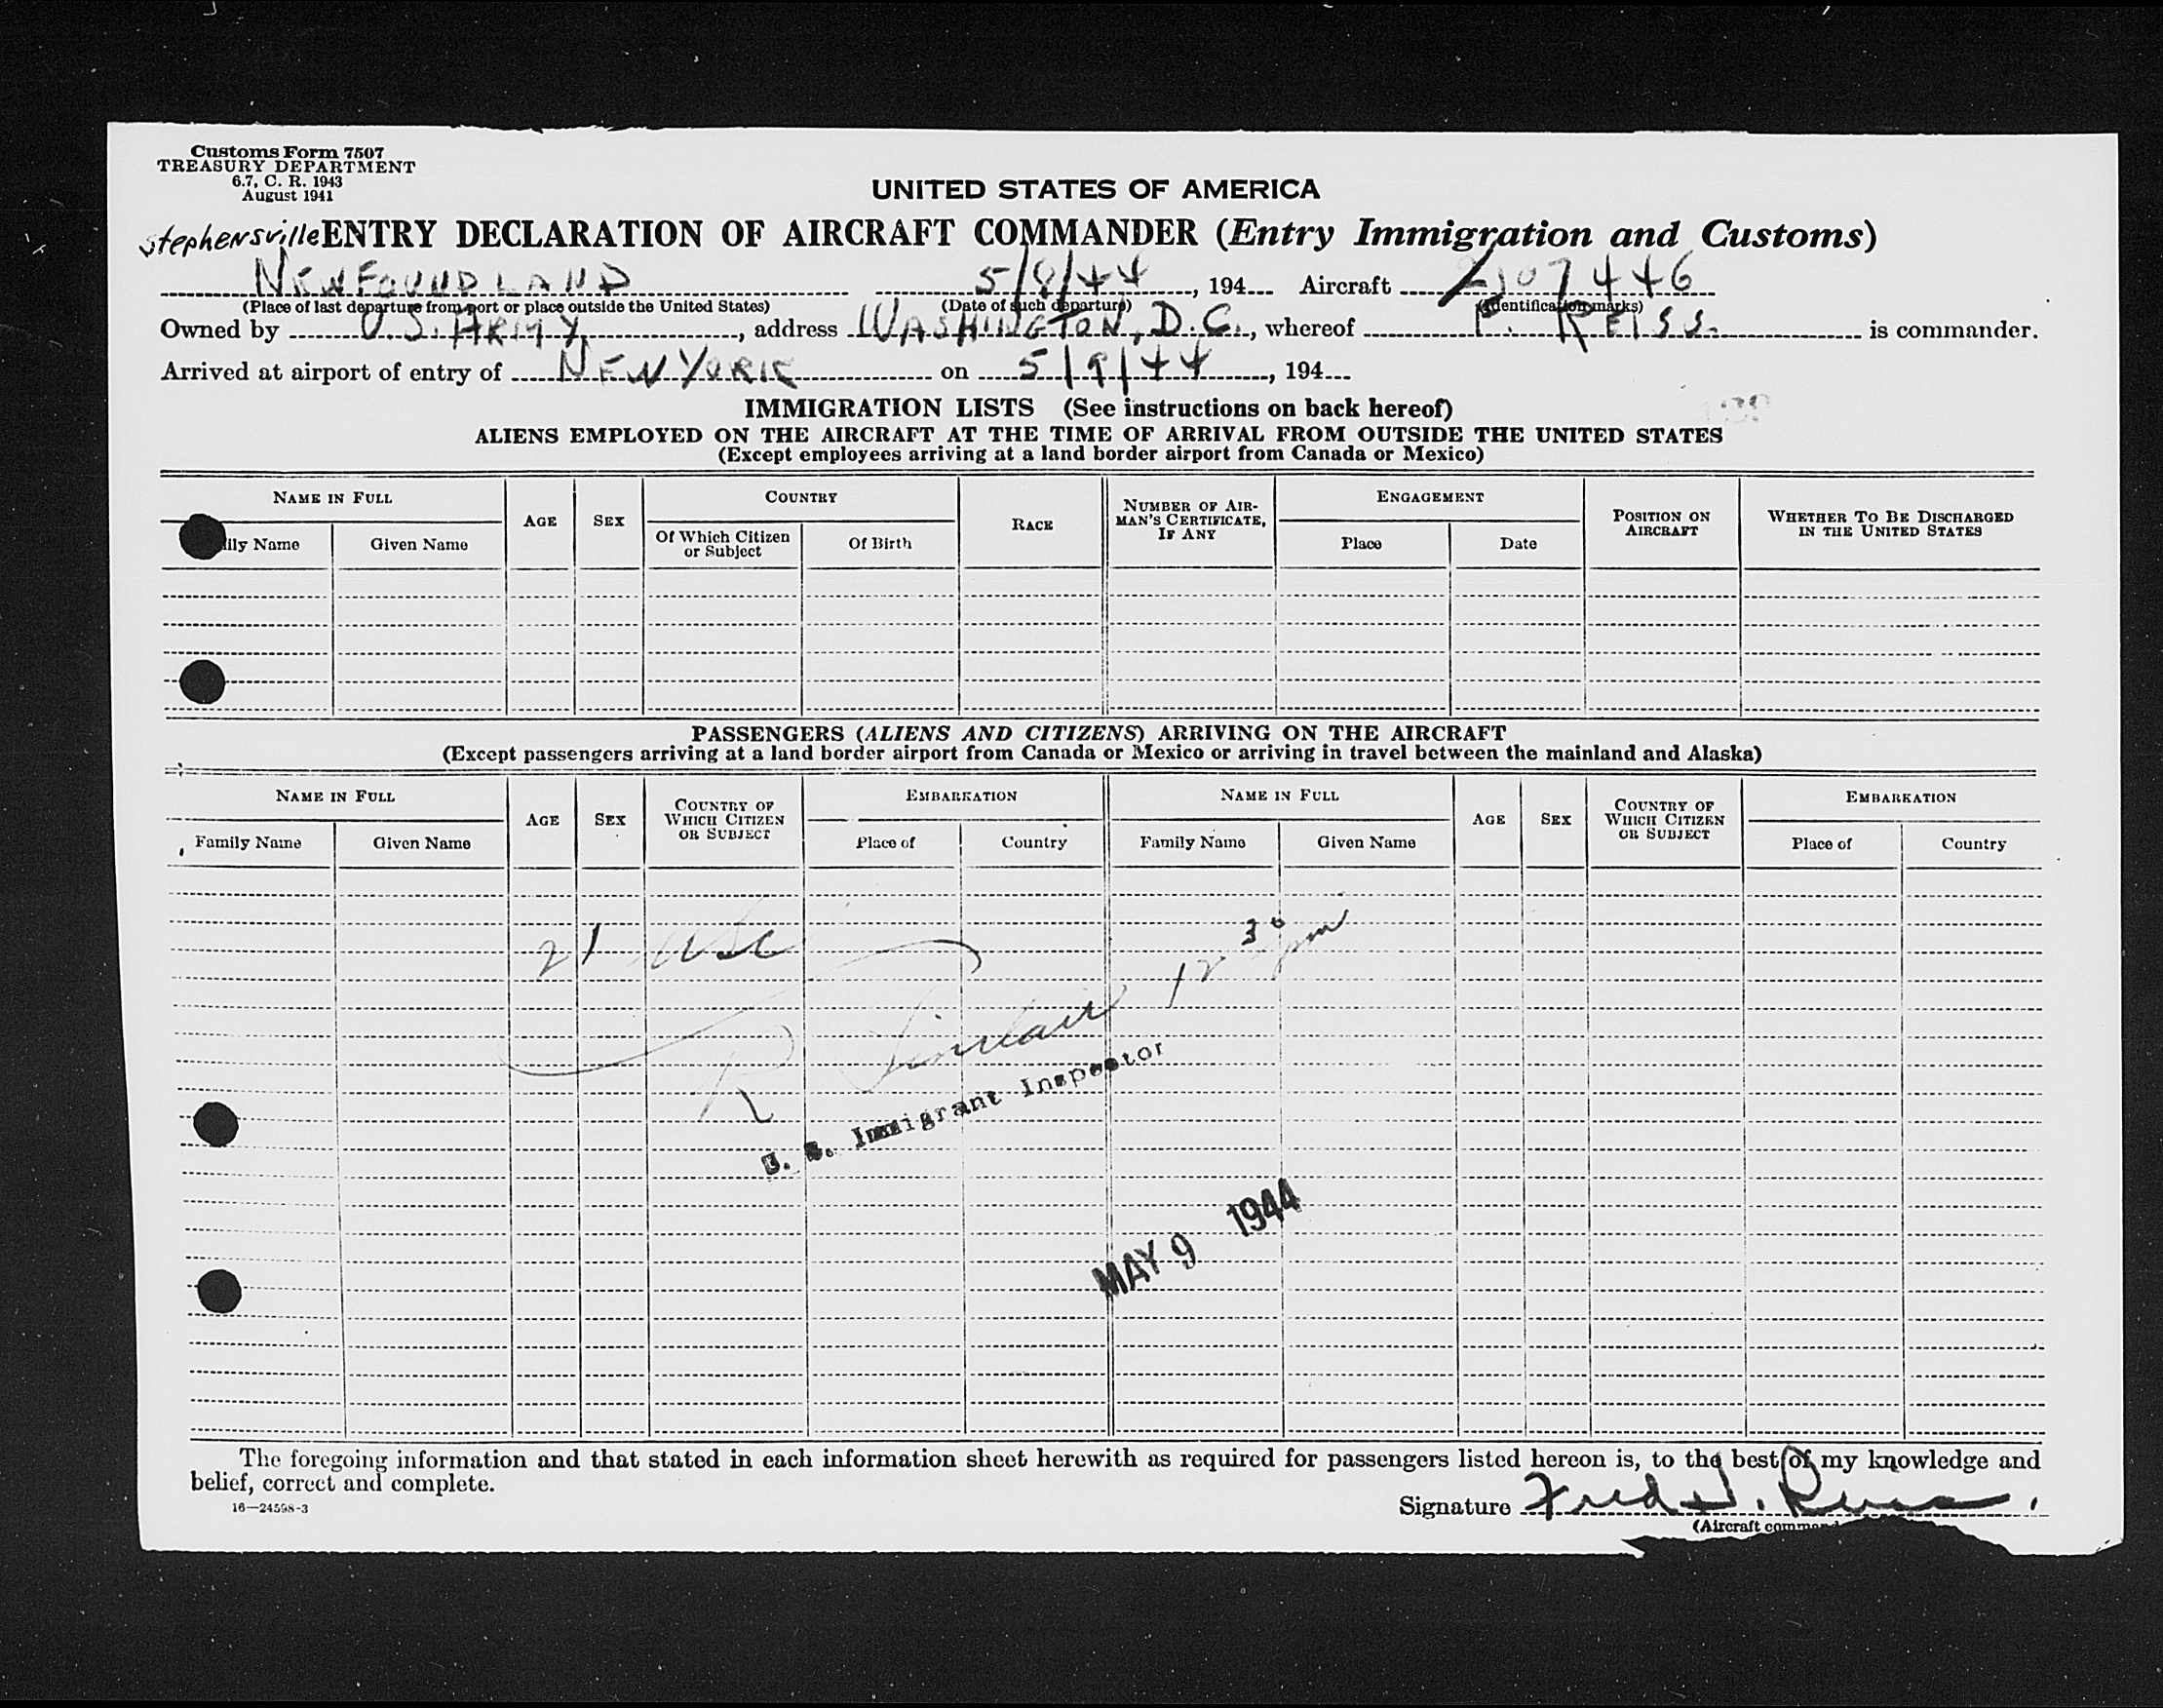 Customs Form 7507
TREASURY DEPARTMENT
6.7, C. R. 1943
August 1941
UNITED STATES OF AMERICA
Stephensville ENTRY DECLARATION OF AIRCRAFT COMMANDER (Entry Immigration and Customs)
NEWFOUNDLAND 5/8/44, 194 Aircraft 2107446
(Place of last departure from port or place outside the United States) (Date of such departure) (Identification marks)
Owned by U.S. ARMY, address WASHINGTON, D.C., whereof F. REISS. is commander.
Arrived at airport of entry of NEW YORK on 5/9/44, 194
IMMIGRATION LISTS (See instructions on back hereof)
ALIENS EMPLOYED ON THE AIRCRAFT AT THE TIME OF ARRIVAL FROM OUTSIDE THE UNITED STATES
(Except employees arriving at a land border airport from Canada or Mexico)
NAME IN FULL AGE SEX COUNTRY RACE NUMBER OF AIRMAN'S CERTIFICATE, IF ANY ENGAGEMENT POSITION ON AIRCRAFT WHETHER TO BE DISCHARGED IN THE UNITED STATES
ily Name Given Name Of Which Citizen or Subject Of Birth Place Date
PASSENGERS (ALIENS AND CITIZENS) ARRIVING ON THE AIRCRAFT
(Except passengers arriving at a land border airport from Canada or Mexico or arriving in travel between the mainland and Alaska)
NAME IN FULL AGE SEX COUNTRY OF WHICH CITIZEN OR SUBJECT EMBARKATION NAME IN FULL AGE SEX COUNTRY OF WHICH CITIZEN OR SUBJECT EMBARKATION
Family Name Given Name Place of Country Family Name Given Name Place of Country
21 USC 12 30 pm
R Sinclair
U. S. Immigrant Inspector
MAY 9 1944
The foregoing information and that stated in each information sheet herewith as required for passengers listed hereon is, to the best of my knowledge and
belief, correct and complete.
16—24598-3
Signature Fred J. Reiss.
(Aircraft